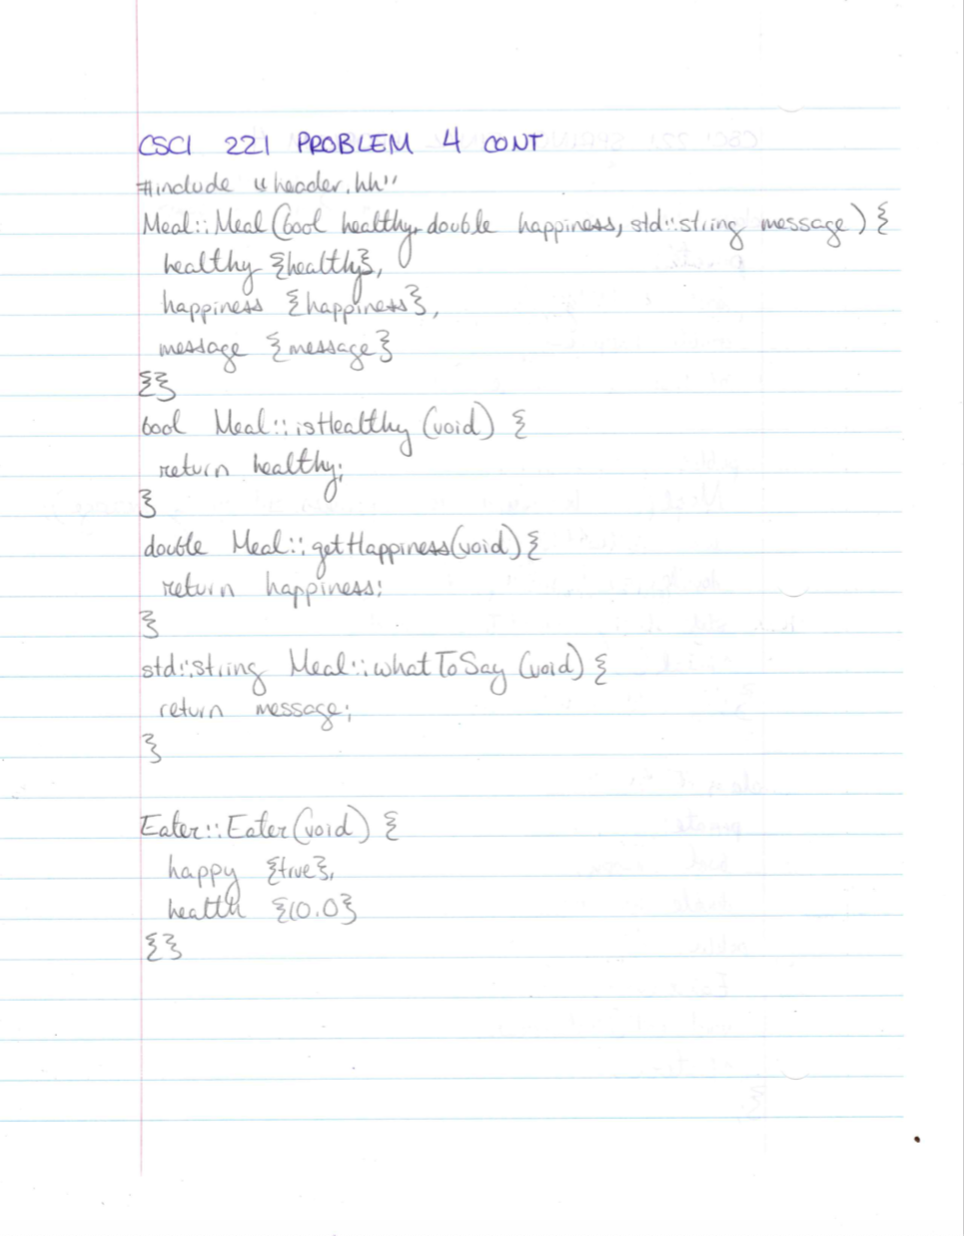 CSCI 221 PROBLEM 4 CONT
#include "header.hh"
Meal::Meal(bool healthy, double happiness, std::string message) {
healthy {healthy},
happiness {happiness},
message {message}
{}
bool Meal::isHealthy (void) {
return healthy;
}
double Meal::getHappiness(void) {
return happiness;
}
std::string Meal::whatToSay (void) {
return message;
}
Eater::Eater(void) {
happy {true},
health {10.0}
{}